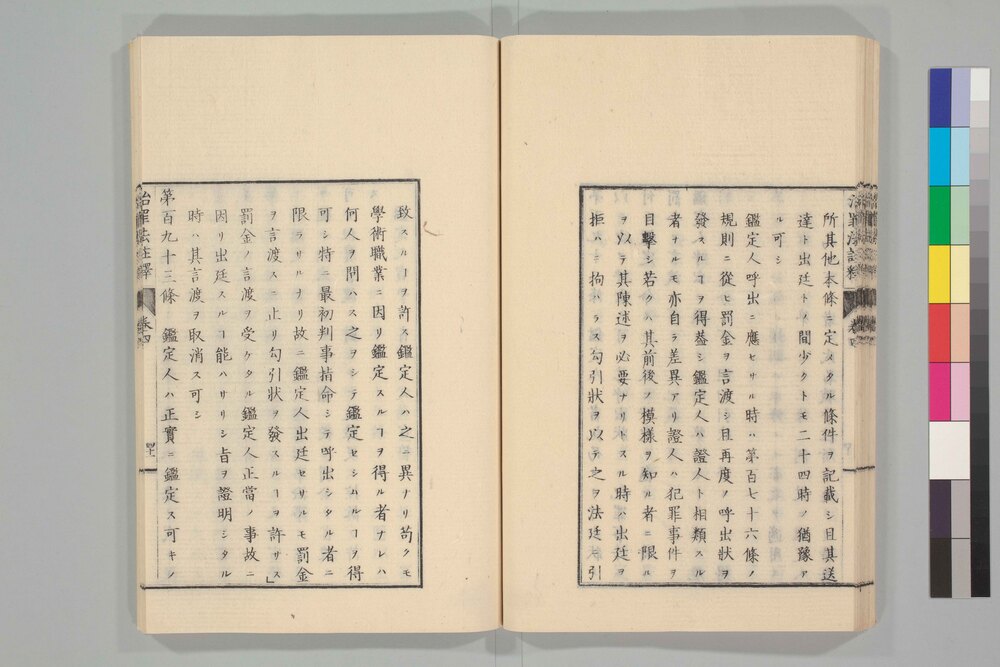 所其他本條ニ定メタル條件ヲ記載シ且其送
達ト出廷トノ間少クトモ二十四時ノ猶豫ア
ル可シ
鑑定人呼出ニ應セサル時ハ第百七十六條ノ
規則ニ從ヒ罰金ヲ言渡シ且再度ノ呼出狀ヲ
發スルヿヲ得葢シ鑑定人ハ證人ト相類スル
者ナルモ亦自ラ差異アリ證人ハ犯罪事件ヲ
目擊シ若クハ其前後ノ模樣ヲ知ル者ニ限ル
ヲ以テ其陳述ヲ必要ナリトスル時ハ出廷ヲ
拒ハニ拘ハラス勾引狀ヲ以テ之ヲ法廷ニ引
致スルヿヲ許ス鑑定人ハ之ニ異ナリ苟クモ
學術職業ニ因リ鑑定スルヿヲ得ル者ナレハ
何人ヲ問ハス之ヲシテ鑑定セシムルヿヲ得
可シ特ニ最初判事指命シテ呼出シタル者ニ
限ラサルナリ故ニ鑑定人出廷セサルモ罰金
ヲ言渡スニ止リ勾引狀ヲ發スルヿヲ許サス」
罰金ノ言渡ヲ受ケタル鑑定人正當ノ事故ニ
因リ出廷スルヿ能ハサリシ旨ヲ證明シタル
時ハ其言渡ヲ取消ス可シ
第百九十三條 鑑定人ハ正實ニ鑑定ス可キノ
治罪法註釋 卷四